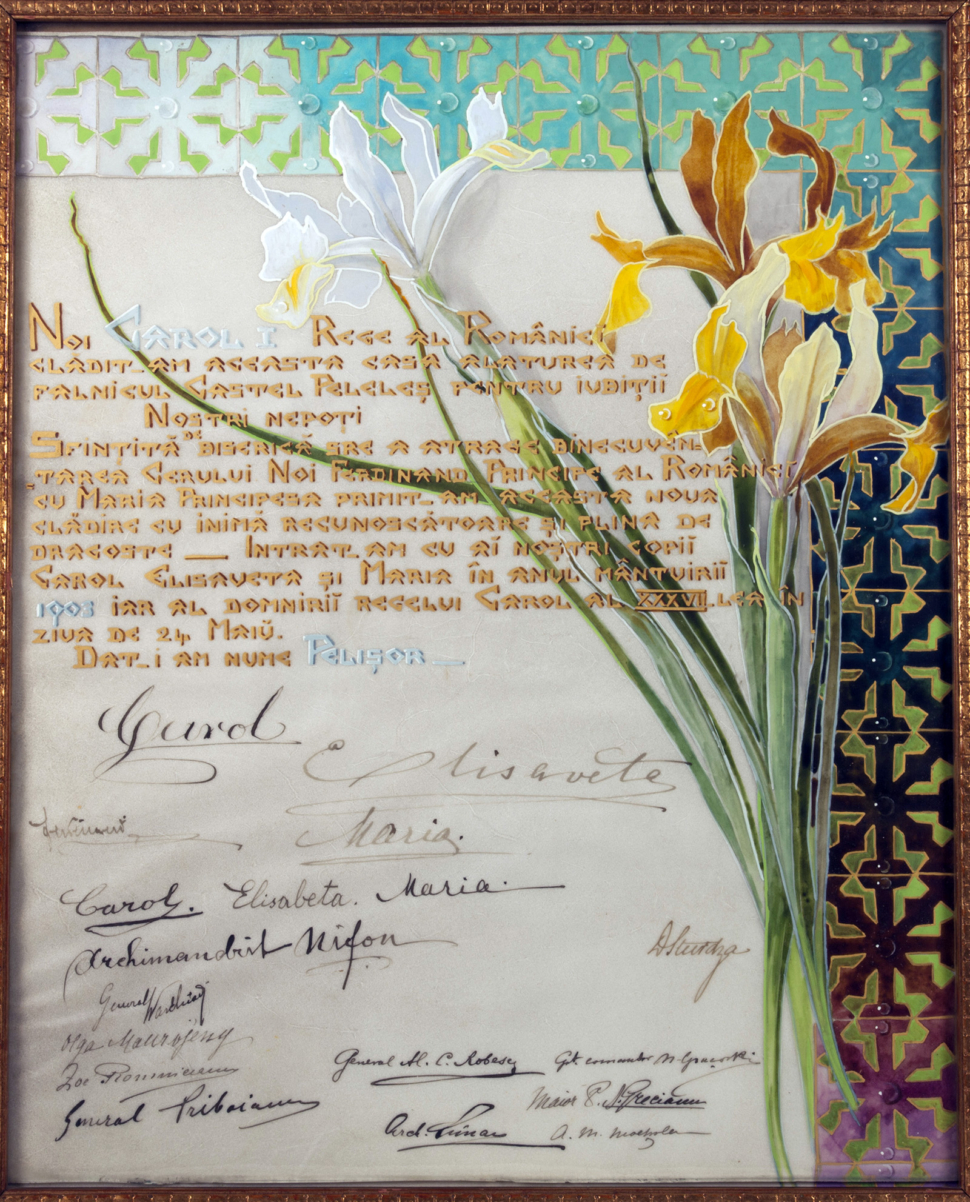 Noi Carol I Rege al României
clădit-am aceasta casa alaturea de
falnicul Castel Peleleș pentru iubiții
Nostri nepoți
Sfințită de biserică sre a atrage binecuvên-
tarea Cerului Noi Ferdinand Principe al României
cu Maria Principesa primit-am aceasta noua
clădire cu inimă recunoscătoare și plină de
dragoste — Intrat-am cu aĭ noștri copii
Carol Elisaveta și Maria în anul mântuirii
1903 iar al domnirii regelui Carol al XXXVII-lea în
ziua de 24 Maiŭ.
Dat-i am nume Pelișor —
Carol
Elisaveta
Ferdinand
Maria.
Carol. Elisabeta. Maria.
Archimandrit Nifon
D Sturdza
General
Olga Maurojeny
Zoe
General Priboianu
General Al. C. Robescu
Maior P. N. Grecianu
Arch.
A. M.